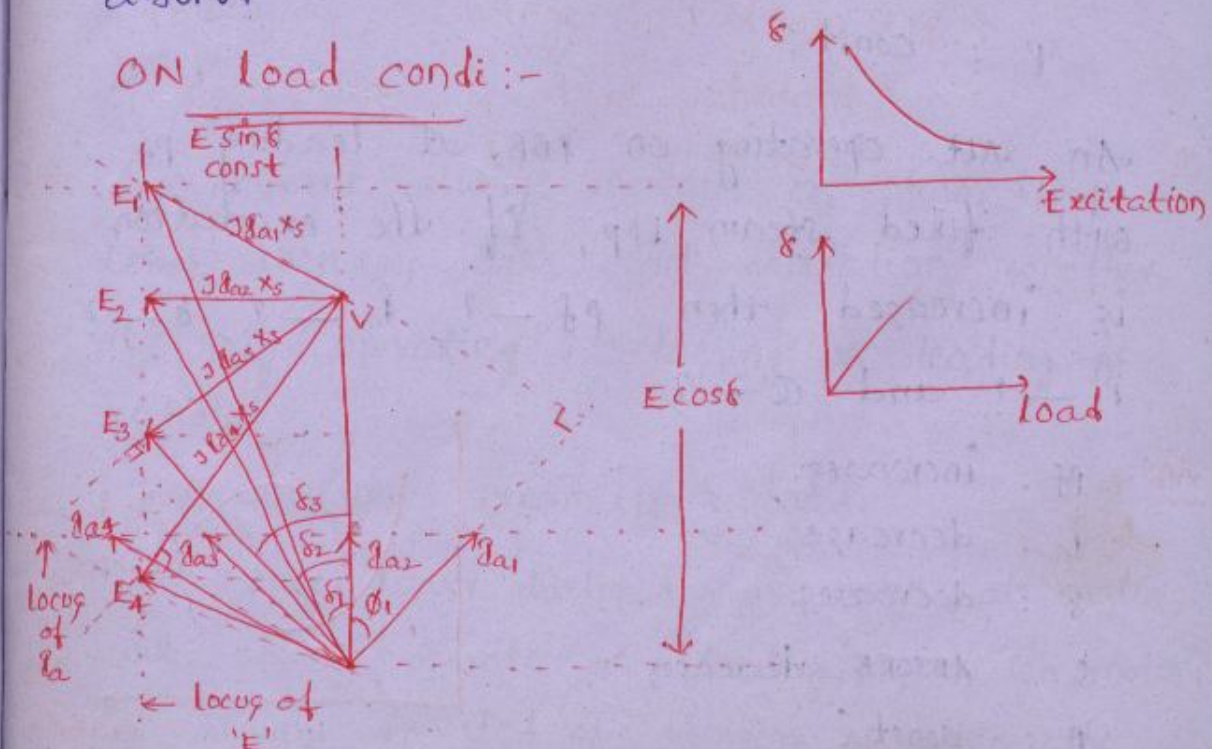 ON load condi :-
E sinδ
const
E₁
JIa₁xs
E₂
JIa₂xs
V
JIa₃xs
E₃
JIa₄xs
δ₃
δ₂
δ₁
Ia₄
Ia₃
Ia₂
Ia₁
E₄
ϕ₁
locus
of
Ia
← locus of
'E'
E cosδ
δ
Excitation
δ
load